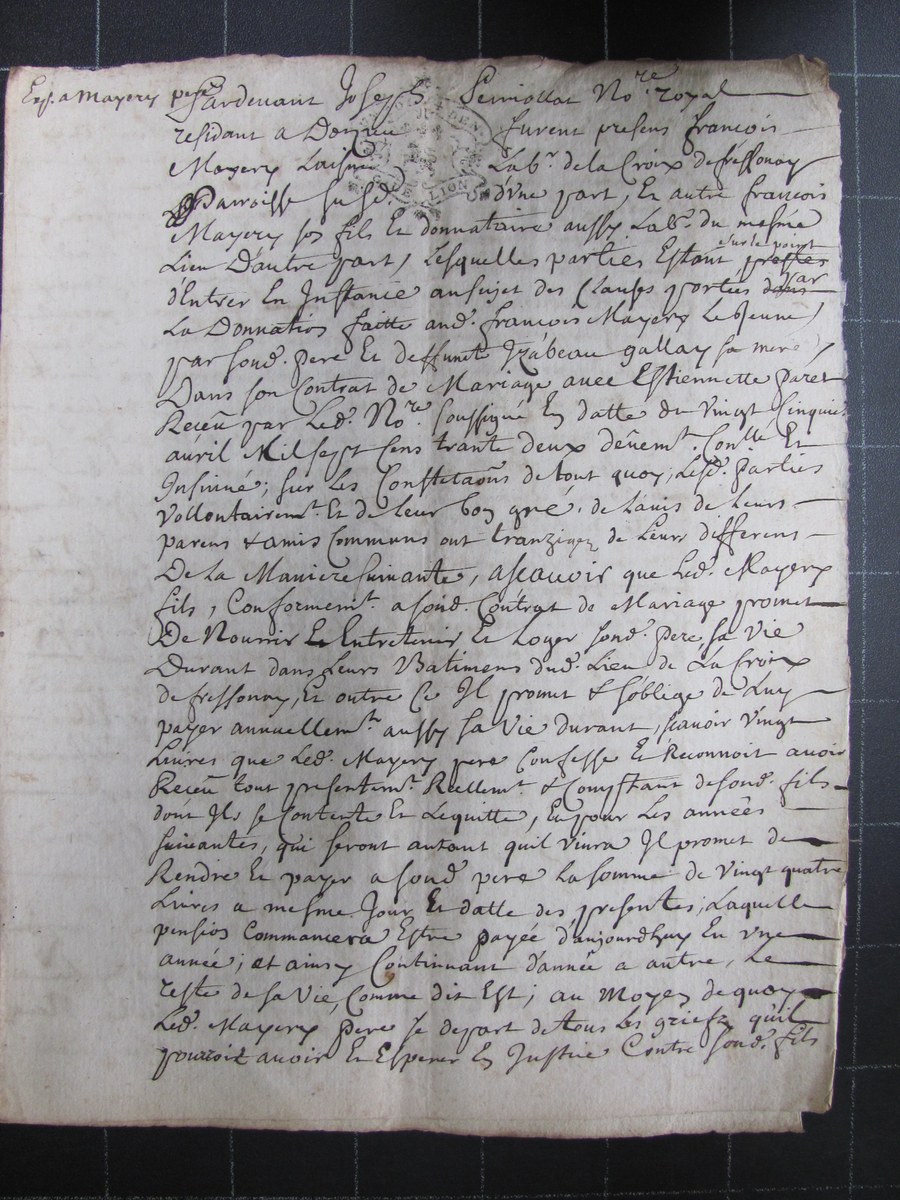 Exp. a Mayery pere
Pardevant Joseph Perriollat No.re royal
residant a furent presens francois
Mayery Laisné Lab.r de la Croix de fressonay
Parroisse susd. d'Une part, Et autre francois
Mayery son fils Et donnataire aussy Lab.r du mesme
Lieu D'autre part, Lesquelles parties Estant sur le point
d'Entrer En Instance au sujet des Clauses portées par
La Donnation faitte aud. francois Mayery Le Jeune
par sond. pere Et deffuncte Izabeau gallay sa mere
Dans son Contrat de Mariage avec Estiennette paret
Receu par Led. No.re soussigné En datte du Vingt Cinquie
avril Mil sept Cens trante deux deüem.t Con.llé Et
Insinué; sur Les Constetaõns de tout quoy, Lesd. parties
Vollontairem.t Et de Leur bon gré, de L'avis de Leurs
parens & amis Communs ont tranzigez de Leurs differens
De La Maniere suivante, ascavoir que Led. Mayery
fils, Conformem.t a sond. Contrat de Mariage promet
De Nourrir Et Entretenir Et Loger sond. pere sa Vie
Durant dans Leurs Batimens dud. Lieu de La Croix
de fressonay, Et outre Ce Il promet & s'oblige de Luy
payer annuellem.t aussy sa Vie durant, scavoir Vingt
Livres que Led. Mayery pere Confesse Et Reconnoit avoir
Receu tout presentem.t Reellem.t & Comptant de sond. fils
dont Il se Contente Et Lequitte, Et pour Les années
suivantes, qui seront autant quil vivra Il promet de
Rendre Et payer a sond. pere La somme de Vingt quatre
Livres a mesme Jour Et datte des presentes, Laquelle
pension Commancera Estre payée d'aujourdhuy En Une
année; et ainsy Continuant d'année a autre, Le
reste de sa Vie, Comme dit Est; au Moyen de quoy
Led. Mayery pere se depart de tous Les griefs qu'il
pouroit avoir Et Esperer En Justice Contre sond. fils